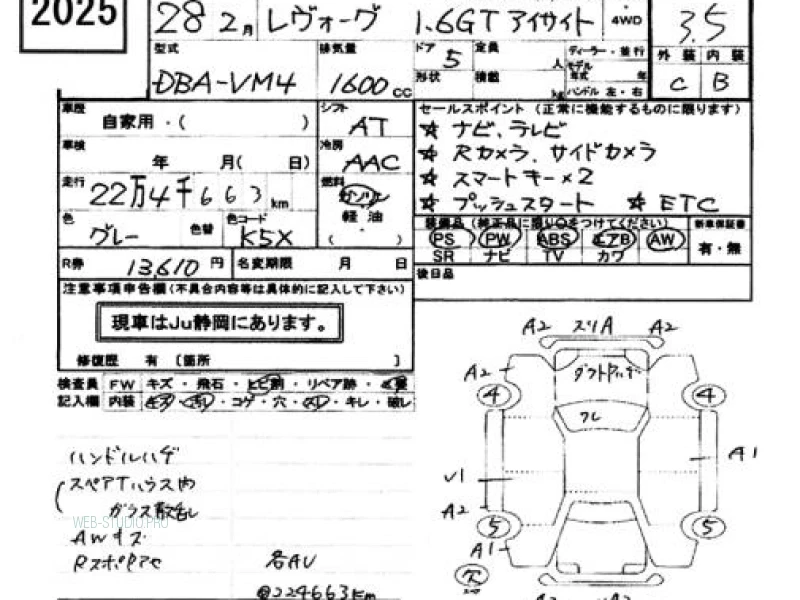 2025
28 2月 レヴォーグ 1.6GT アイサイト 4WD 3.5
型式 DBA-VM4 排気量 1600 cc
ドア 5 定員 人 ディーラー・並行
形状 積載 kg モデル年式 年 ハンドル 左・右
外装 内装
C B
車歴 自家用・( )
シフト AT
車検 年 月( 日)
冷房 AAC
走行 22万4千663 km
燃料 ガソリン 軽油 ( )
色 グレー 色替 色コード K5X
R券 13,610 円 名変期限 月 日
セールスポイント (正常に機能するものに限ります)
☆ ナビ、テレビ
☆ Rカメラ、サイドカメラ
☆ スマートキー×2
☆ プッシュスタート ☆ ETC
装備品 (純正品に限り○をつけてください) 新車保証書
PS PW ABS エアB AW 有・無
SR ナビ TV カワ
後日品
注意事項申告欄 (不具合内容等は具体的に記入して下さい)
現車はJu静岡にあります。
修復歴 有 〔箇所 〕
検査員 FW キズ・飛石・ヒビ割・リペア跡・
記入欄 内装 キズ・汚れ・コゲ・穴・・キレ・破レ
ハンドルハゲ
スペアTハウス内
ガラス散乱
WEB-STUDIO.PRO
AWキズ
各AU
@224663km
A2 スリA A2
A2
4 4
フレ
V1 A1
A2
5 5
A1
穴
A2 A2